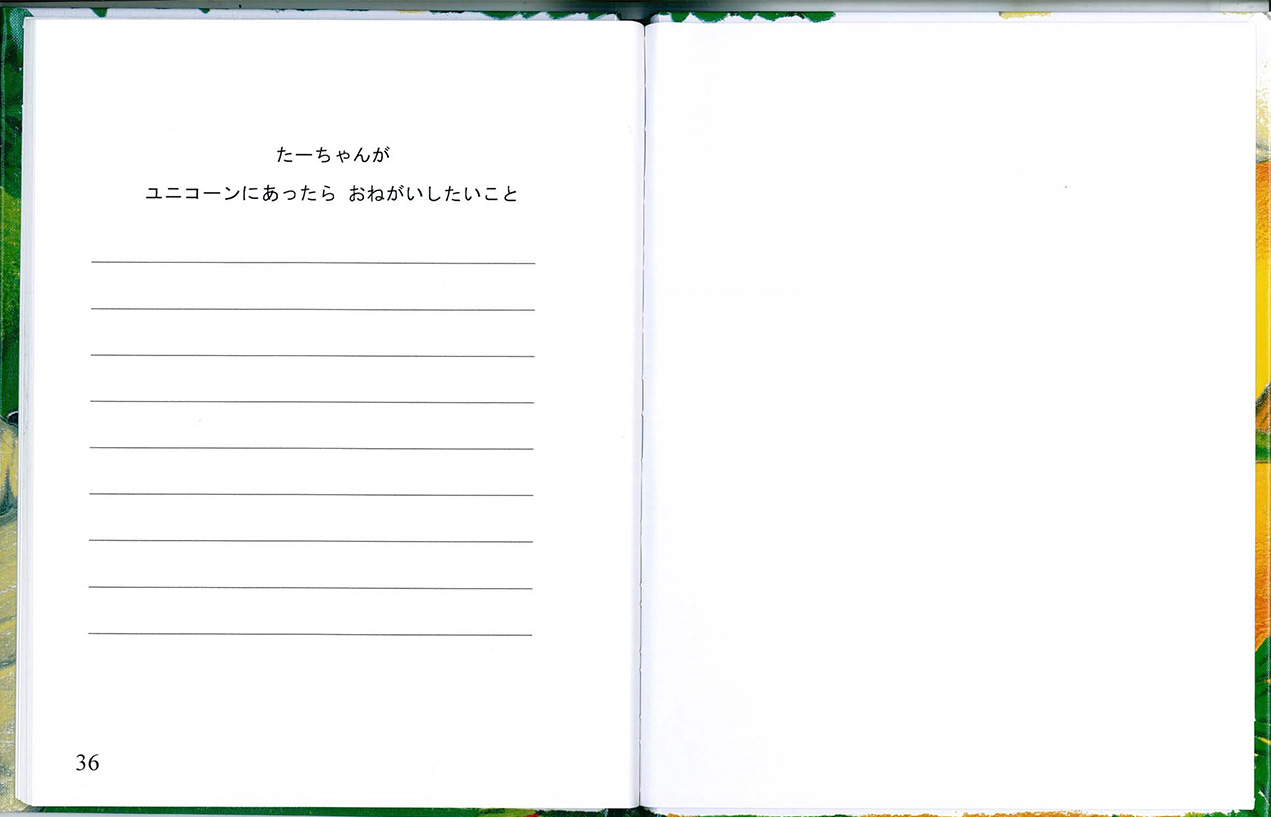 たーちゃんが
ユニコーンにあったら おねがいしたいこと
36